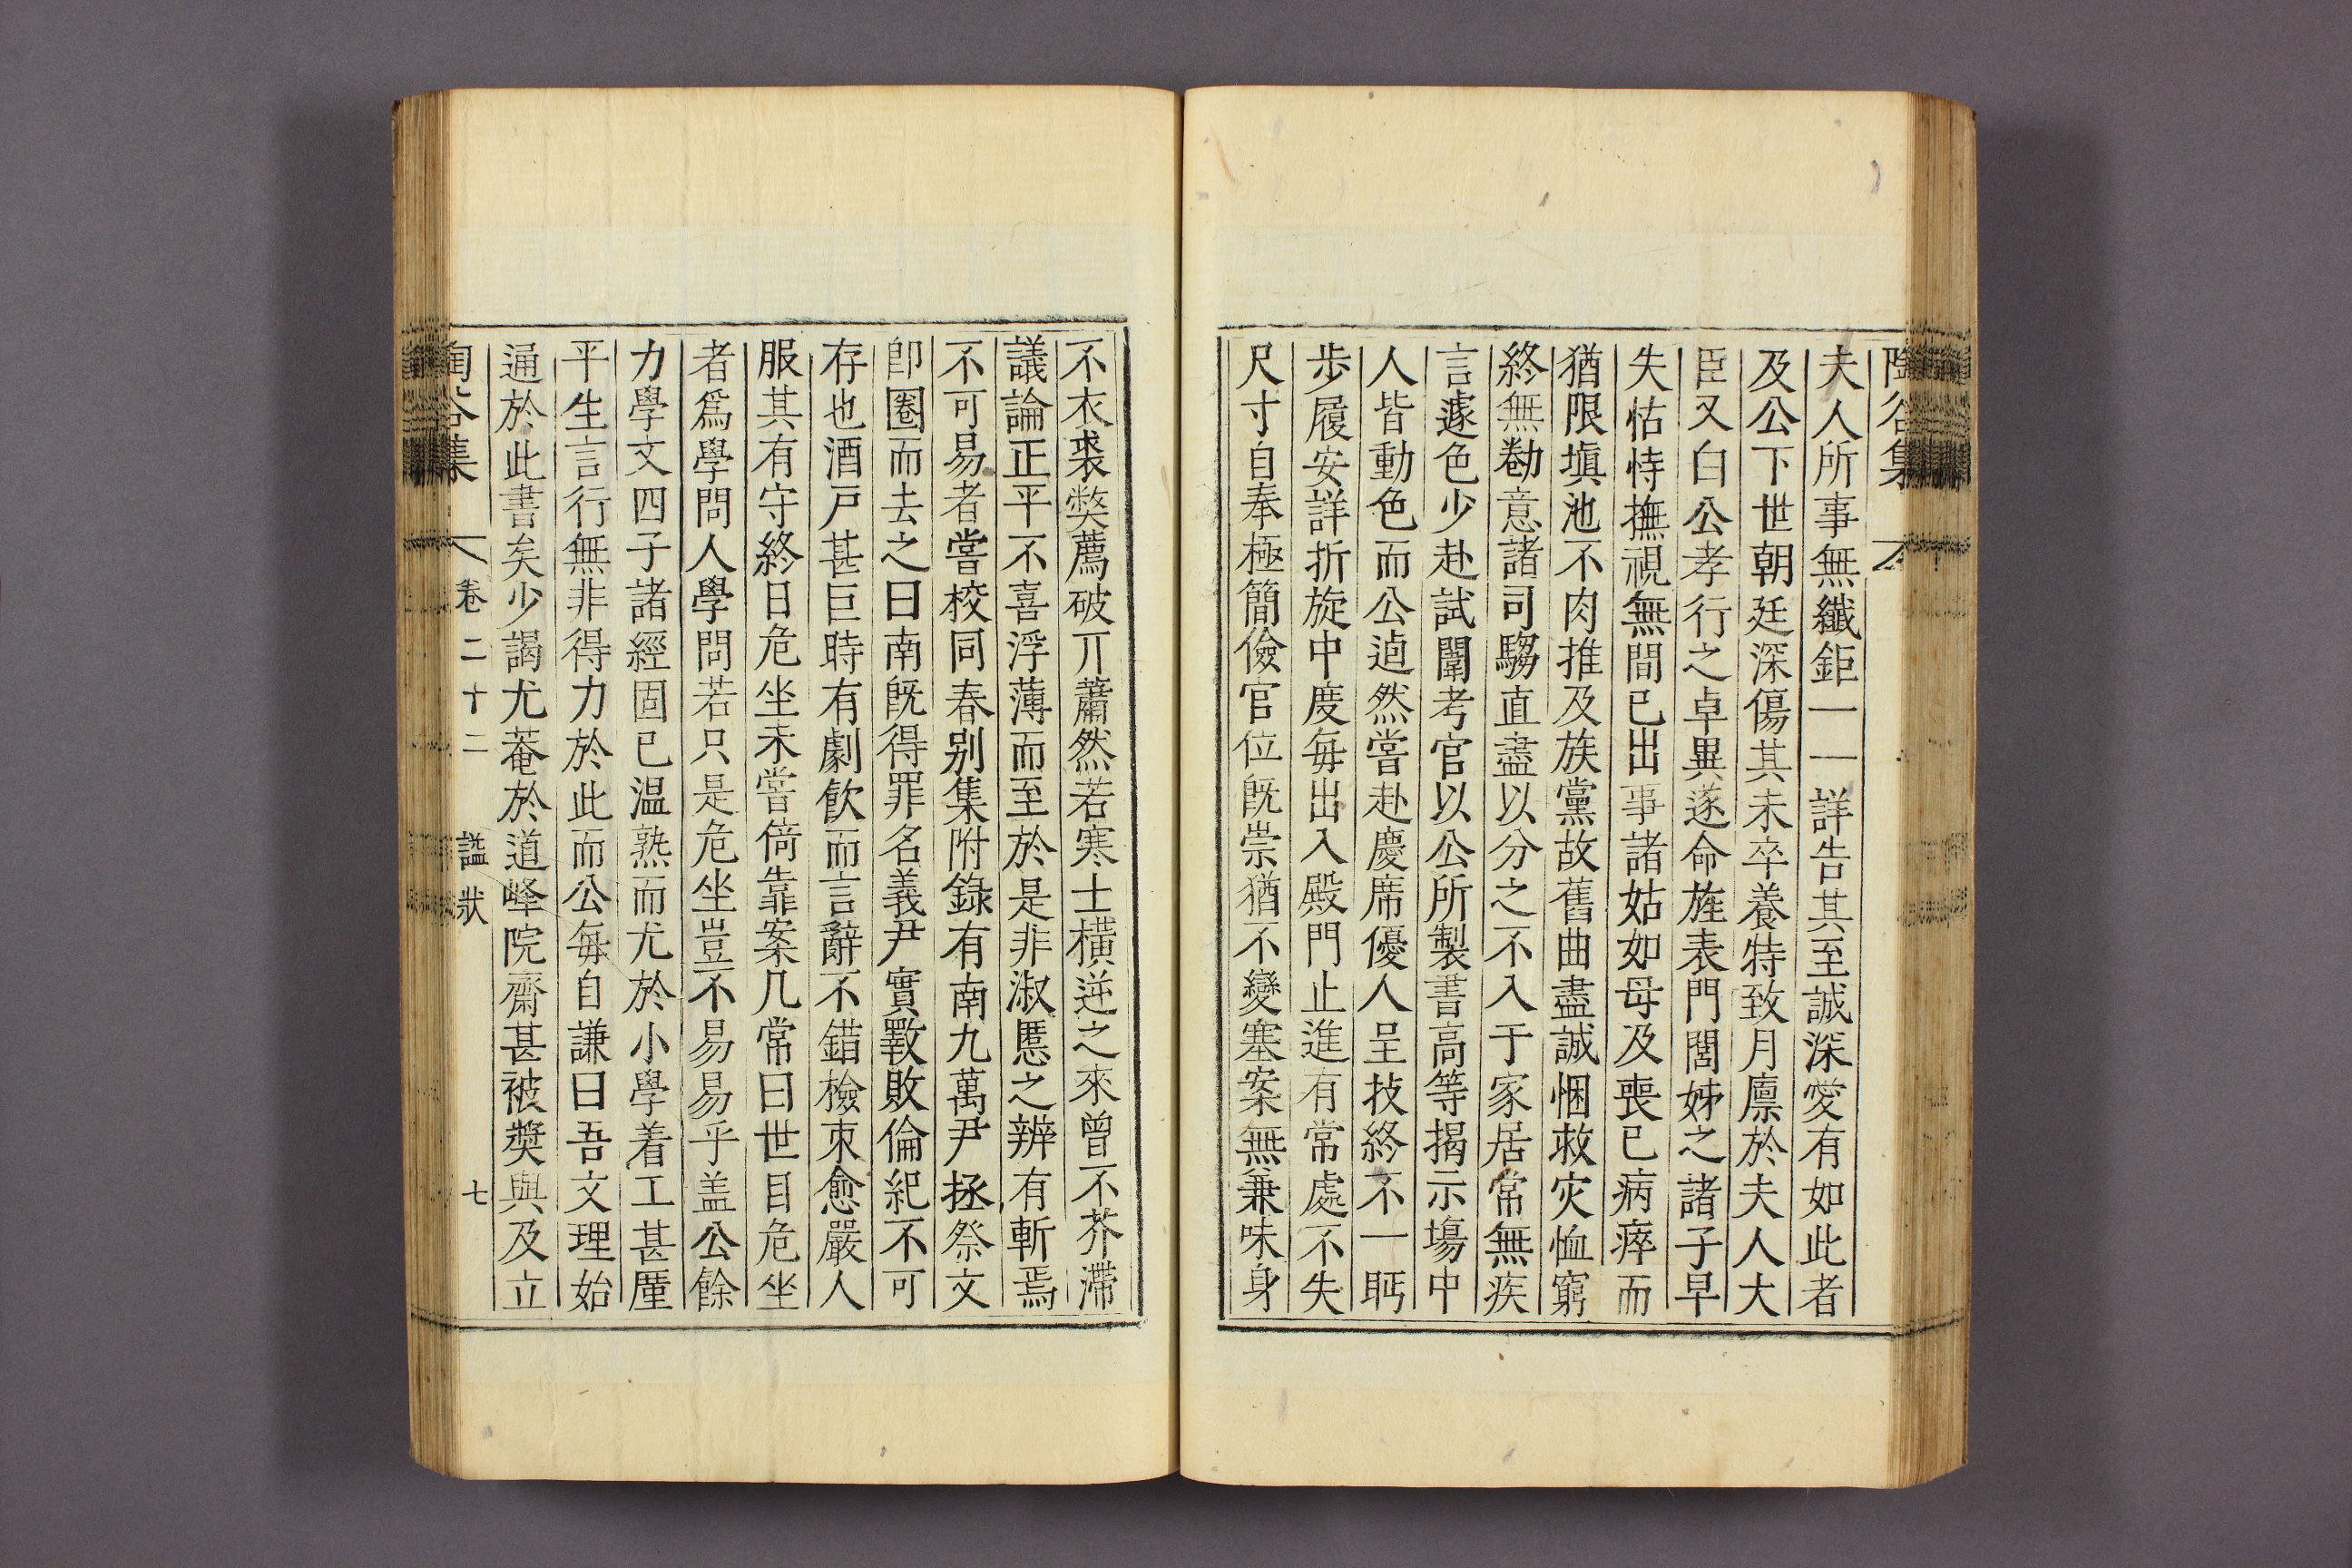 陶谷集
夫人所事無纖鉅一一詳告其至誠深愛有如此者
及公下世朝廷深傷其未卒養特致月廩於夫人大
臣又白公孝行之卓異遂命旌表門閭姊之諸子早
失怙恃撫視無間已出事諸姑如母及喪已病瘁而
猶限塡池不肉推及族黨故舊曲盡誠悃救灾恤窮
終無勌意諸司騶直盡以分之不入于家居常無疾
言遽色少赴試闈考官以公所製書高等揭示塲中
人皆動色而公逌然甞赴慶席優人呈技終不一眄
步履安詳折旋中度每出入殿門止進有常處不失
尺寸自奉極簡儉官位旣崇猶不變塞案無兼味身
不衣裘獘薦破丌蕭然若寒士橫逆之來曾不芥滯
議論正平不喜浮薄而至於是非淑慝之辨有斬焉
不可易者甞校同春别集附錄有南九萬尹拯祭文
卽圈而去之曰南旣得罪名義尹實斁敗倫紀不可
存也酒戶甚巨時有劇飮而言辭不錯檢束愈嚴人
服其有守終日危坐未甞倚靠案几常曰世目危坐
者爲學問人學問若只是危坐豈不易易乎盖公餘
力學文四子諸經固已温熟而尤於小學着工甚厪
平生言行無非得力於此而公每自謙曰吾文理始
通於此書矣少謁尤菴於道峰院齋甚被奬與及立
陶谷集 卷二十二 諡狀 七